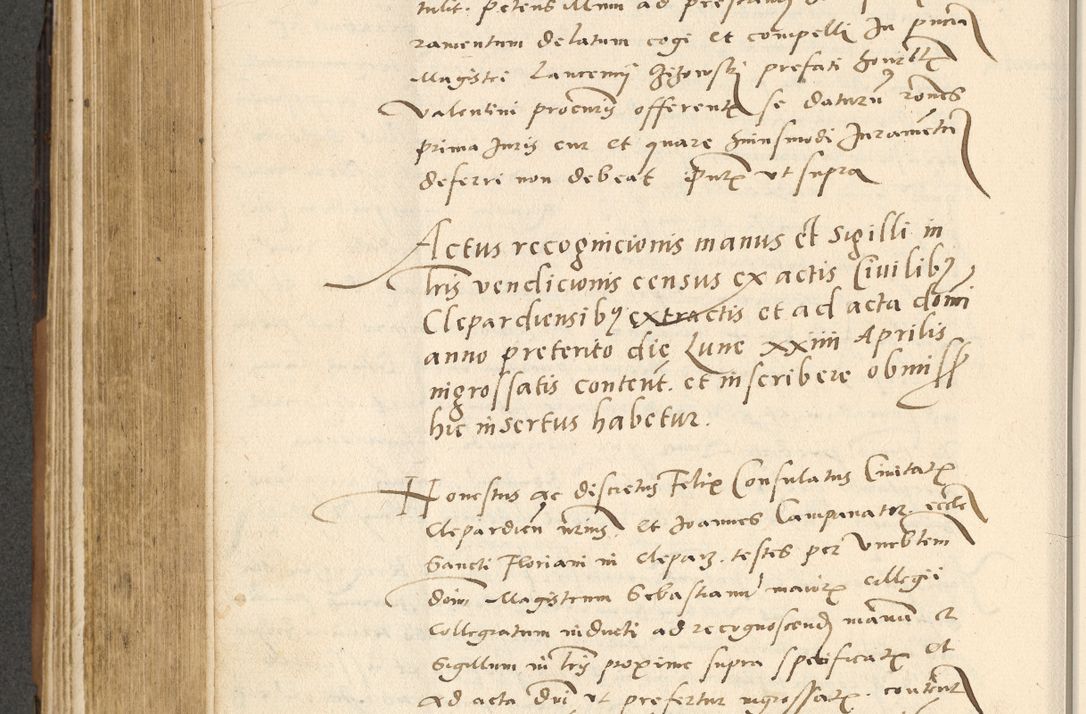 ramentum delatum cogi et compelli In pncia
Magistri Laurencii prefati honorabilis
Valentini procuris offerente se daturu rones
prima Juris cur et quare huiusmodi Juramentu
deferri non debeat Pnte ut supra
Actus recognicionis manus et sigilli in
lris vendicionis census ex actis Ciuilib9
Clepardiensib9 extractis et ad acta domi
anno preterito die Lune xxiiii Aprilis
nigrossatis content. et inscribere obmiss
hic insertus habetur.
Honestus ac discretus Felix Consulatus Ciuitatis
Clepardien nrius et Joannes Campanator eccle
Sancti Floriani in Clepar. testes per vnebtem
dom Magistrum Sebastianu maioris collegii
Collegiatum inducti ad recognoscend manu et
Sigillum in lris proxime supra specificat et
ad acta Dni ut prefertur ingrossat. content